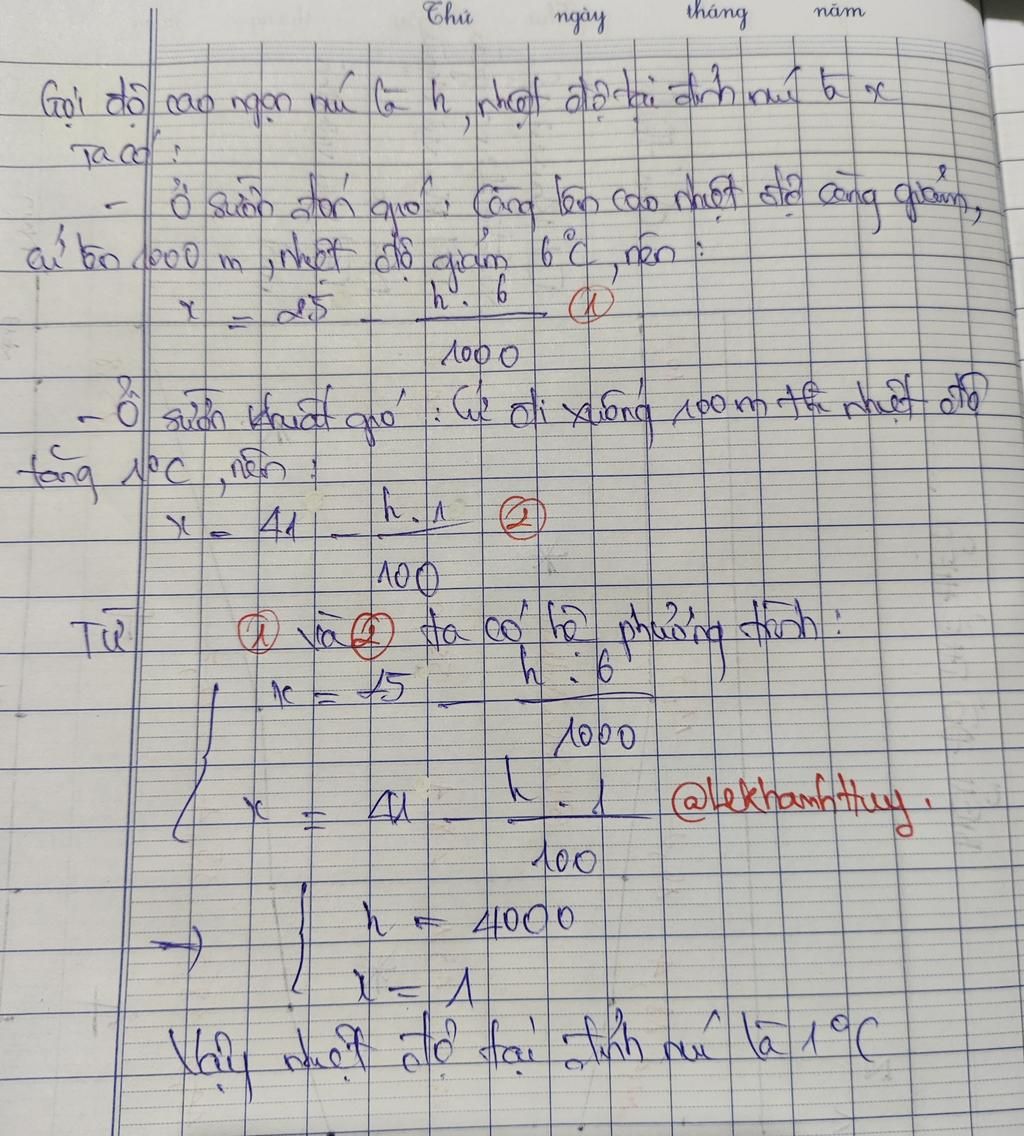 Thứ ngày tháng năm
Gọi độ cao ngọn núi là h, nhiệt độ tại đỉnh núi là x
Ta có:
- Ở sườn đón gió: Càng lên cao nhiệt độ càng giảm,
cứ lên 1000 m, nhiệt độ giảm 6°C, nên:
x = 25 - h. 6 / 1000 ①
- Ở sườn khuất gió: Cứ đi xuống 100m thì nhiệt độ
tăng 1°C, nên:
x = 41 - h. 1 / 100 ②
Từ ① và ② ta có hệ phương trình:
x = 25 - h . 6 / 1000
x = 41 - h . 1 / 100 @LekhanhHuy.
→ { h = 4000
x = 1
Vậy nhiệt độ tại đỉnh núi là 1°C